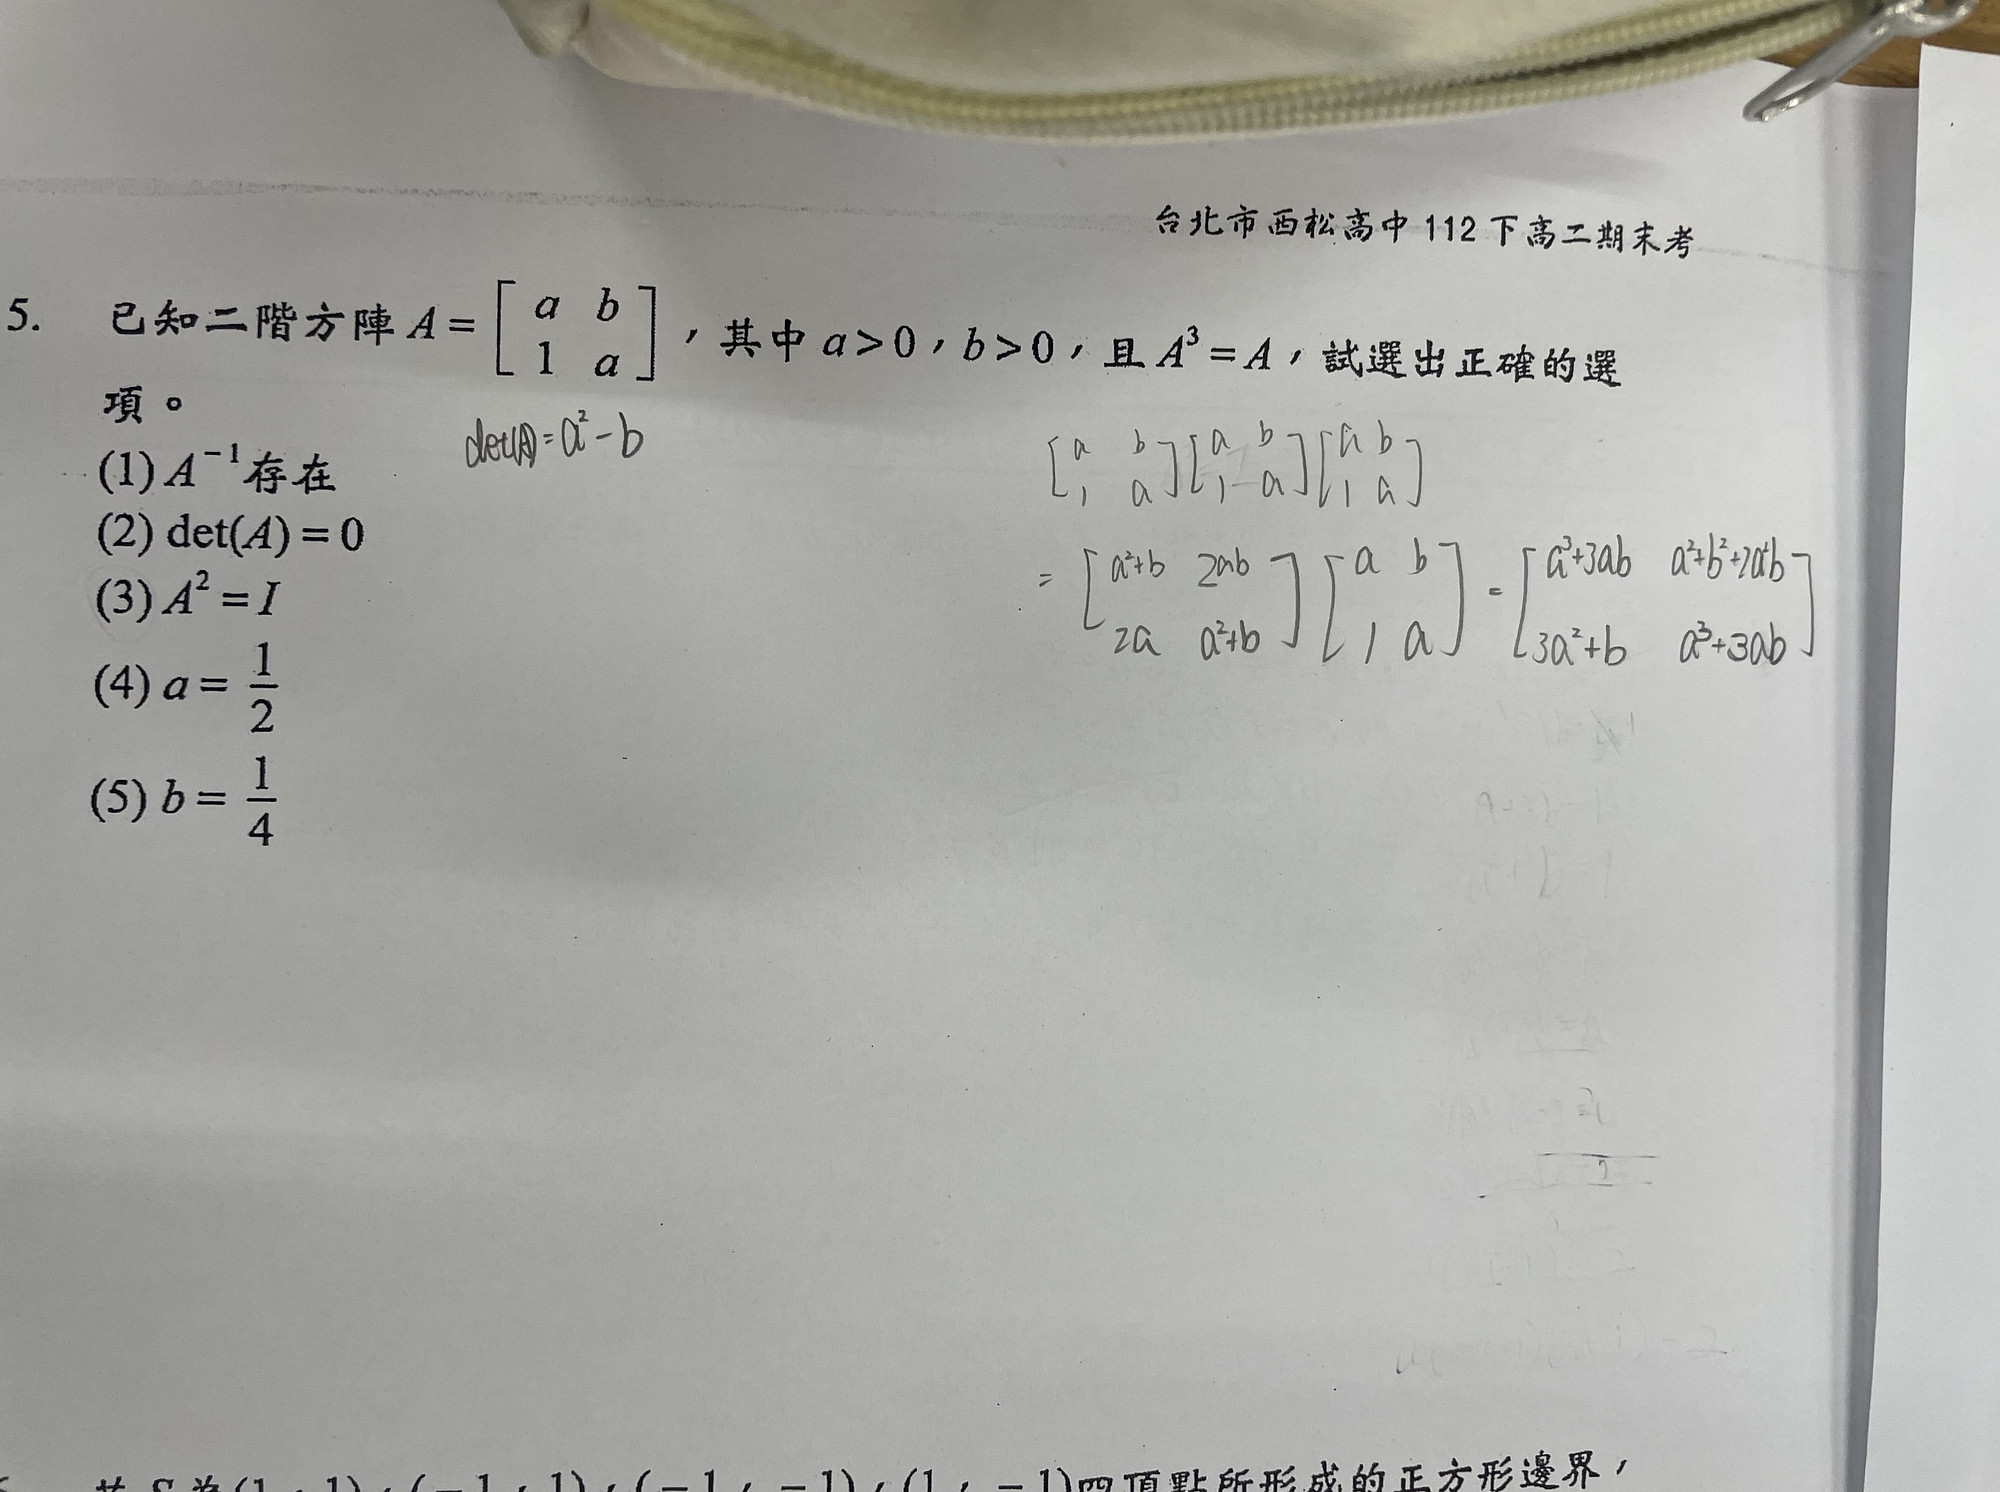 台北市西松高中 112 下高二期末考
5. 已知二階方陣 A = [ a b ; 1 a ] ,其中 a > 0,b > 0,且 A³ = A,試選出正確的選
項。
det(A) = a² - b
(1) A⁻¹ 存在
(2) det(A) = 0
(3) A² = I
(4) a = 1/2
(5) b = 1/4
[ a b ; 1 a ] [ a b ; 1 a ] [ a b ; 1 a ]
= [ a²+b 2ab ; 2a a²+b ] [ a b ; 1 a ] = [ a³+3ab a²+b²+2a²b ; 3a²+b a³+3ab ]
(1,1),(-1,1),(-1,-1),(1,-1)四頂點所形成的正方形邊界,